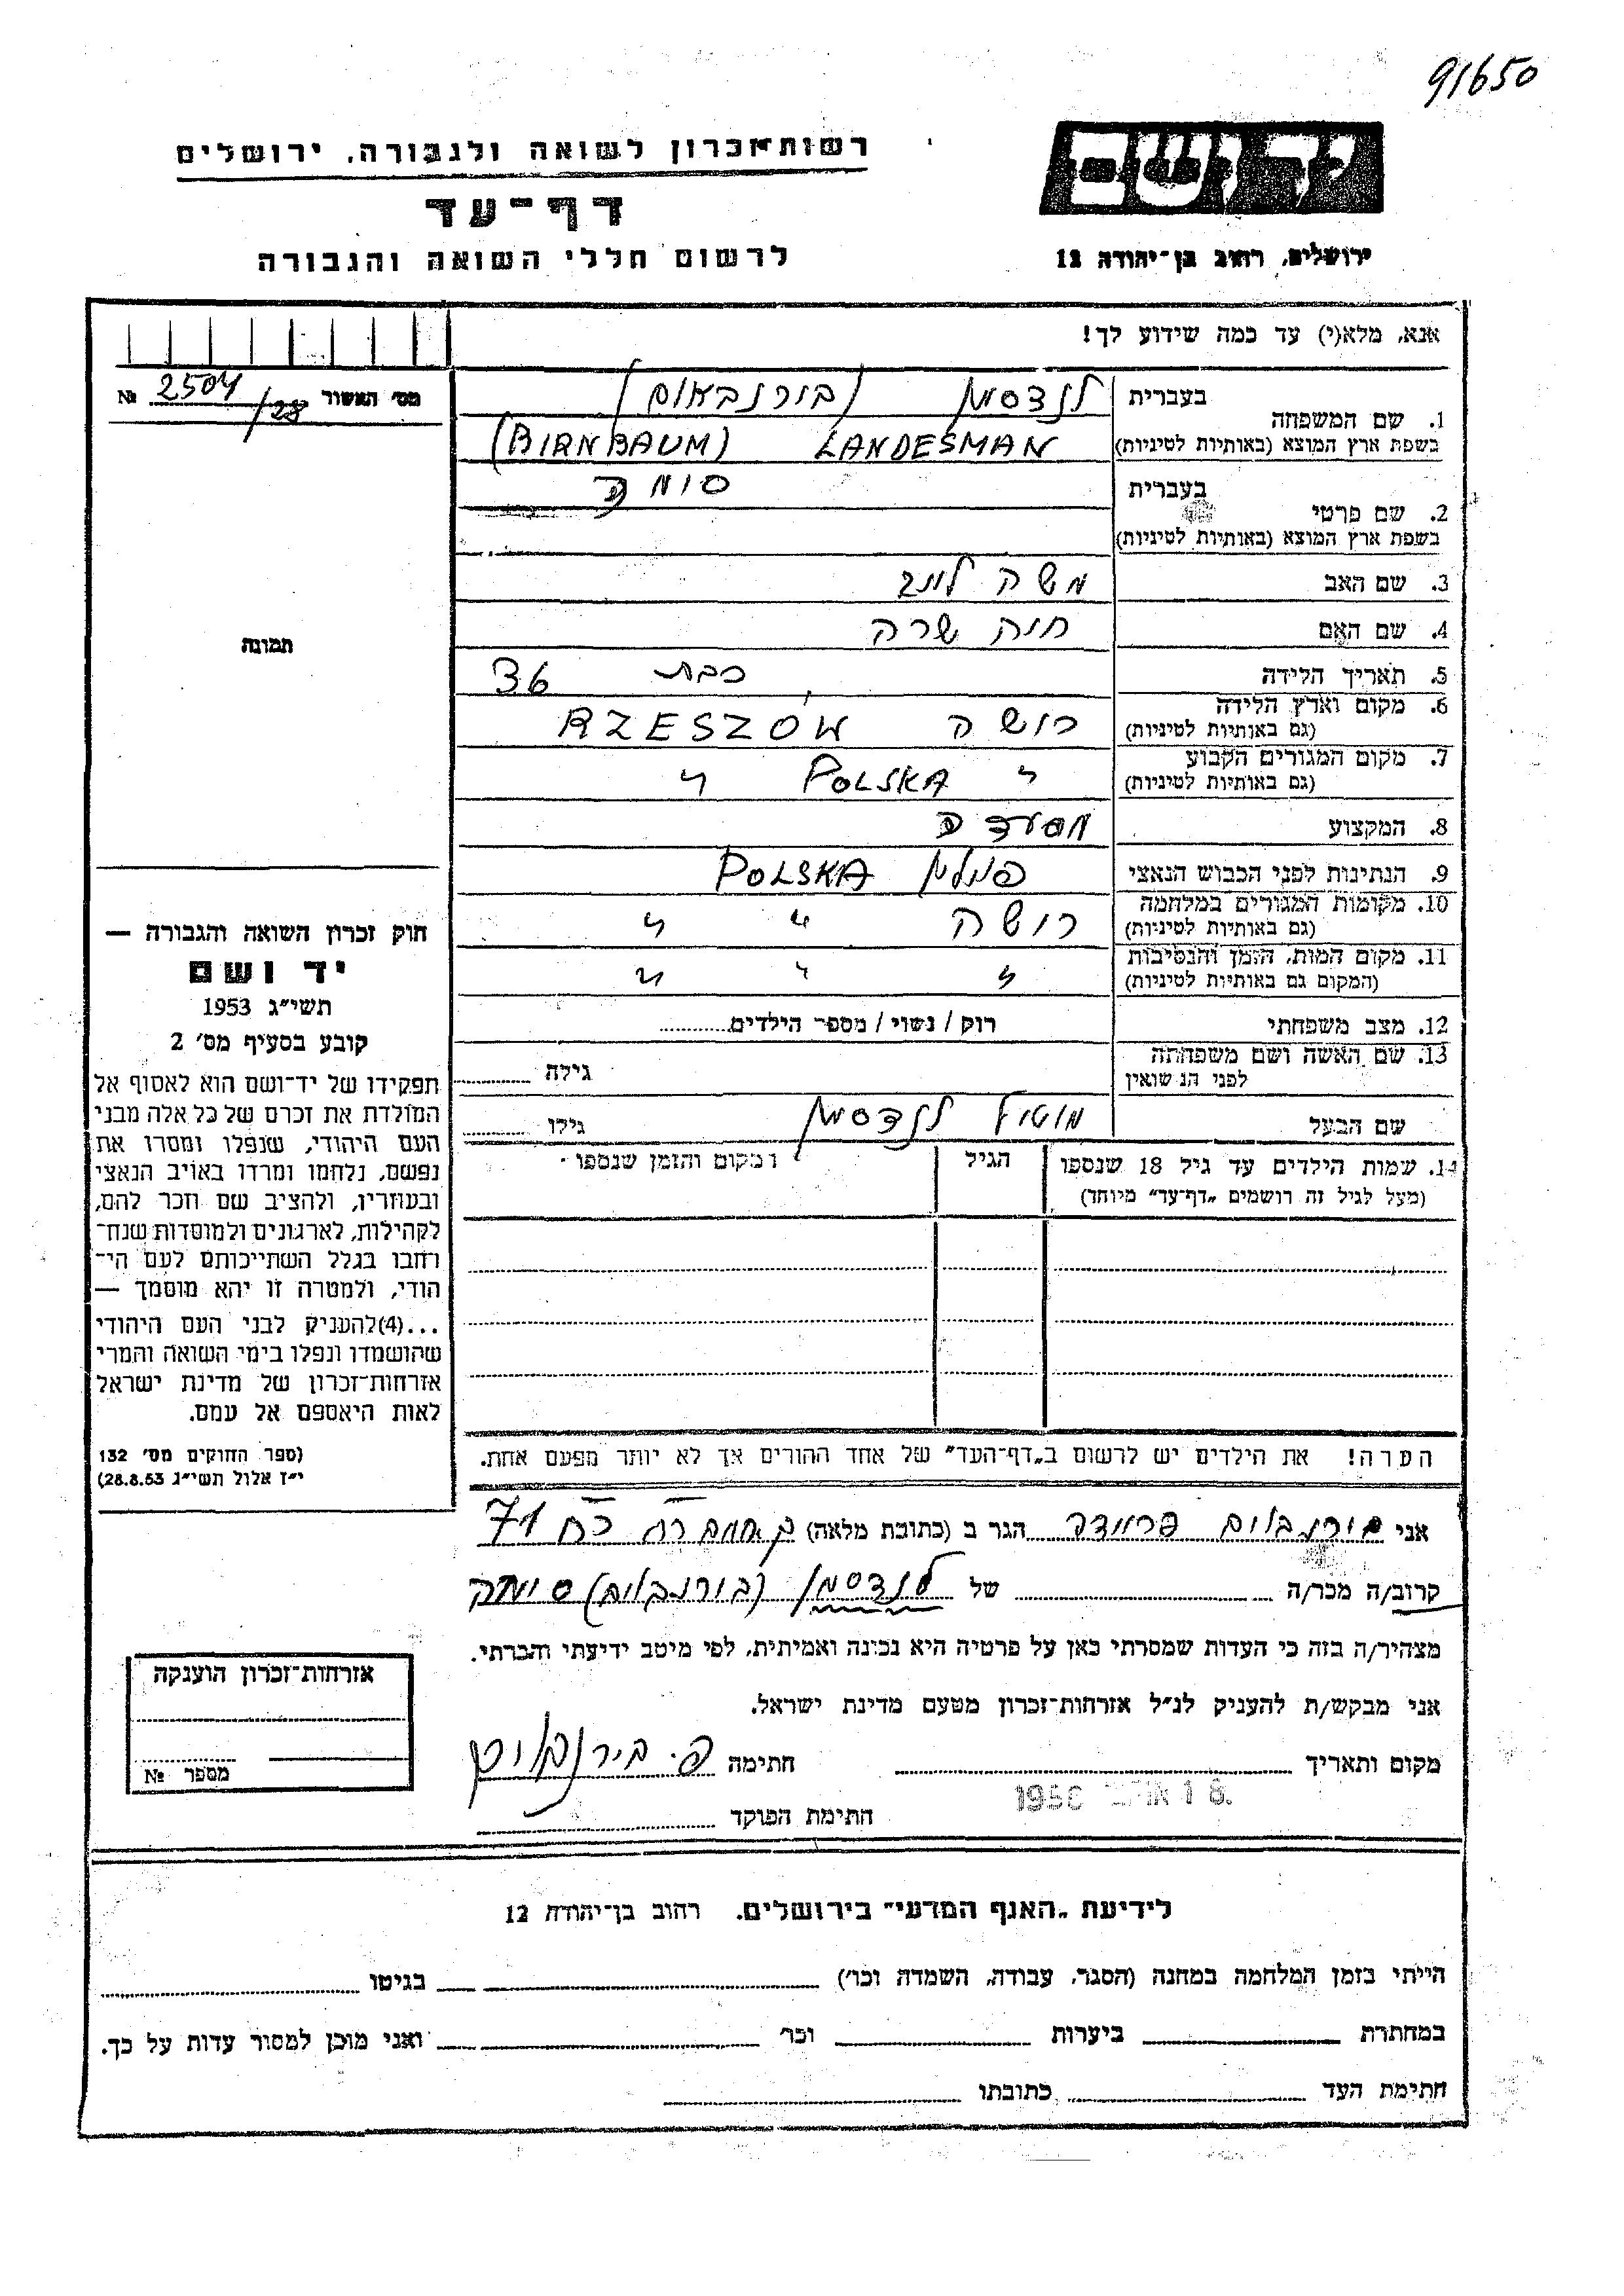 91650
יד ושם
ירושלים, רחוב בן־יהודה 12
רשות־זכרון לשואה ולגבורה, ירושלים
דף־עד
לרשום חללי השואה והגבורה
אנא, מלא(י) עד כמה שידוע לך!
מס׳ האשור № 2504/28
1. שם המשפחה
בעברית לנדסמן (בורנבאום)
בשפת ארץ המוצא (באותיות לטיניות) LANDESMAN (BIRNBAUM)
2. שם פרטי
בעברית
בשפת ארץ המוצא (באותיות לטיניות)
3. שם האב משה
4. שם האם חיה שרה
5. תאריך הלידה כבת 36
6. מקום וארץ הלידה רושה RZESZÓW
(גם באותיות לטיניות)
7. מקום המגורים הקבוע " POLSKA "
(גם באותיות לטיניות)
8. המקצוע
9. הנתינות לפני הכבוש הנאצי פולין POLSKA
10. מקומות המגורים במלחמה רושה " "
(גם באותיות לטיניות)
11. מקום המות, הזמן והנסיבות " " "
(המקום גם באותיות לטיניות)
12. מצב משפחתי רוק / נשוי / מספר הילדים
13. שם האשה ושם משפחתה גילה
לפני הנשואין
שם הבעל לנדסמן גילו
14. שמות הילדים עד גיל 18 שנספו הגיל ומקום והזמן שנספו
(מעל לגיל זה רושמים „דף־עד״ מיוחד)
הערה! את הילדים יש לרשום ב„דף־העד״ של אחד ההורים אך לא יותר מפעם אחת.
תמונה
חוק זכרון השואה והגבורה —
יד ושם
תשי״ג 1953
קובע בסעיף מס׳ 2
תפקידו של יד־ושם הוא לאסוף אל
המולדת את זכרם של כל אלה מבני
העם היהודי, שנפלו ומסרו את
נפשם, נלחמו ומרדו באויב הנאצי
ובעוזריו, ולהציב שם וזכר להם,
לקהילות, לארגונים ולמוסדות שנח־
רחבו בגלל השתייכותם לעם הי־
הודי, ולמטרה זו יהא מוסמך —
...(4)להעניק לבני העם היהודי
שהושמדו ונפלו בימי השואה והמרי
אזרחות־זכרון של מדינת ישראל
לאות היאספם אל עמם.
(ספר החוקים מס׳ 132
י״ז אלול תשי״ג 28.8.53)
אני בירנבוים הגר ב (כתובת מלאה) 71
קרוב/ה מכר/ה של לנדסמן (בורנבוים)
מצהיר/ה בזה כי העדות שמסרתי כאן על פרטיה היא נכונה ואמיתית, לפי מיטב ידיעתי והכרתי.
אני מבקש/ת להעניק לנ״ל אזרחות־זכרון מטעם מדינת ישראל.
מקום ותאריך חתימה פ. בירנבוים
חתימת הפוקד
אזרחות־זכרון הוענקה
מספר №
לידיעת „האגף המדעי״ בירושלים, רחוב בן־יהודה 12
הייתי בזמן המלחמה במחנה (הסגר, עבודה, השמדה וכו׳) בגיטו
במחתרת ביערות וכו׳ ואני מוכן למסור עדות על כך.
חתימת העד כתובתו